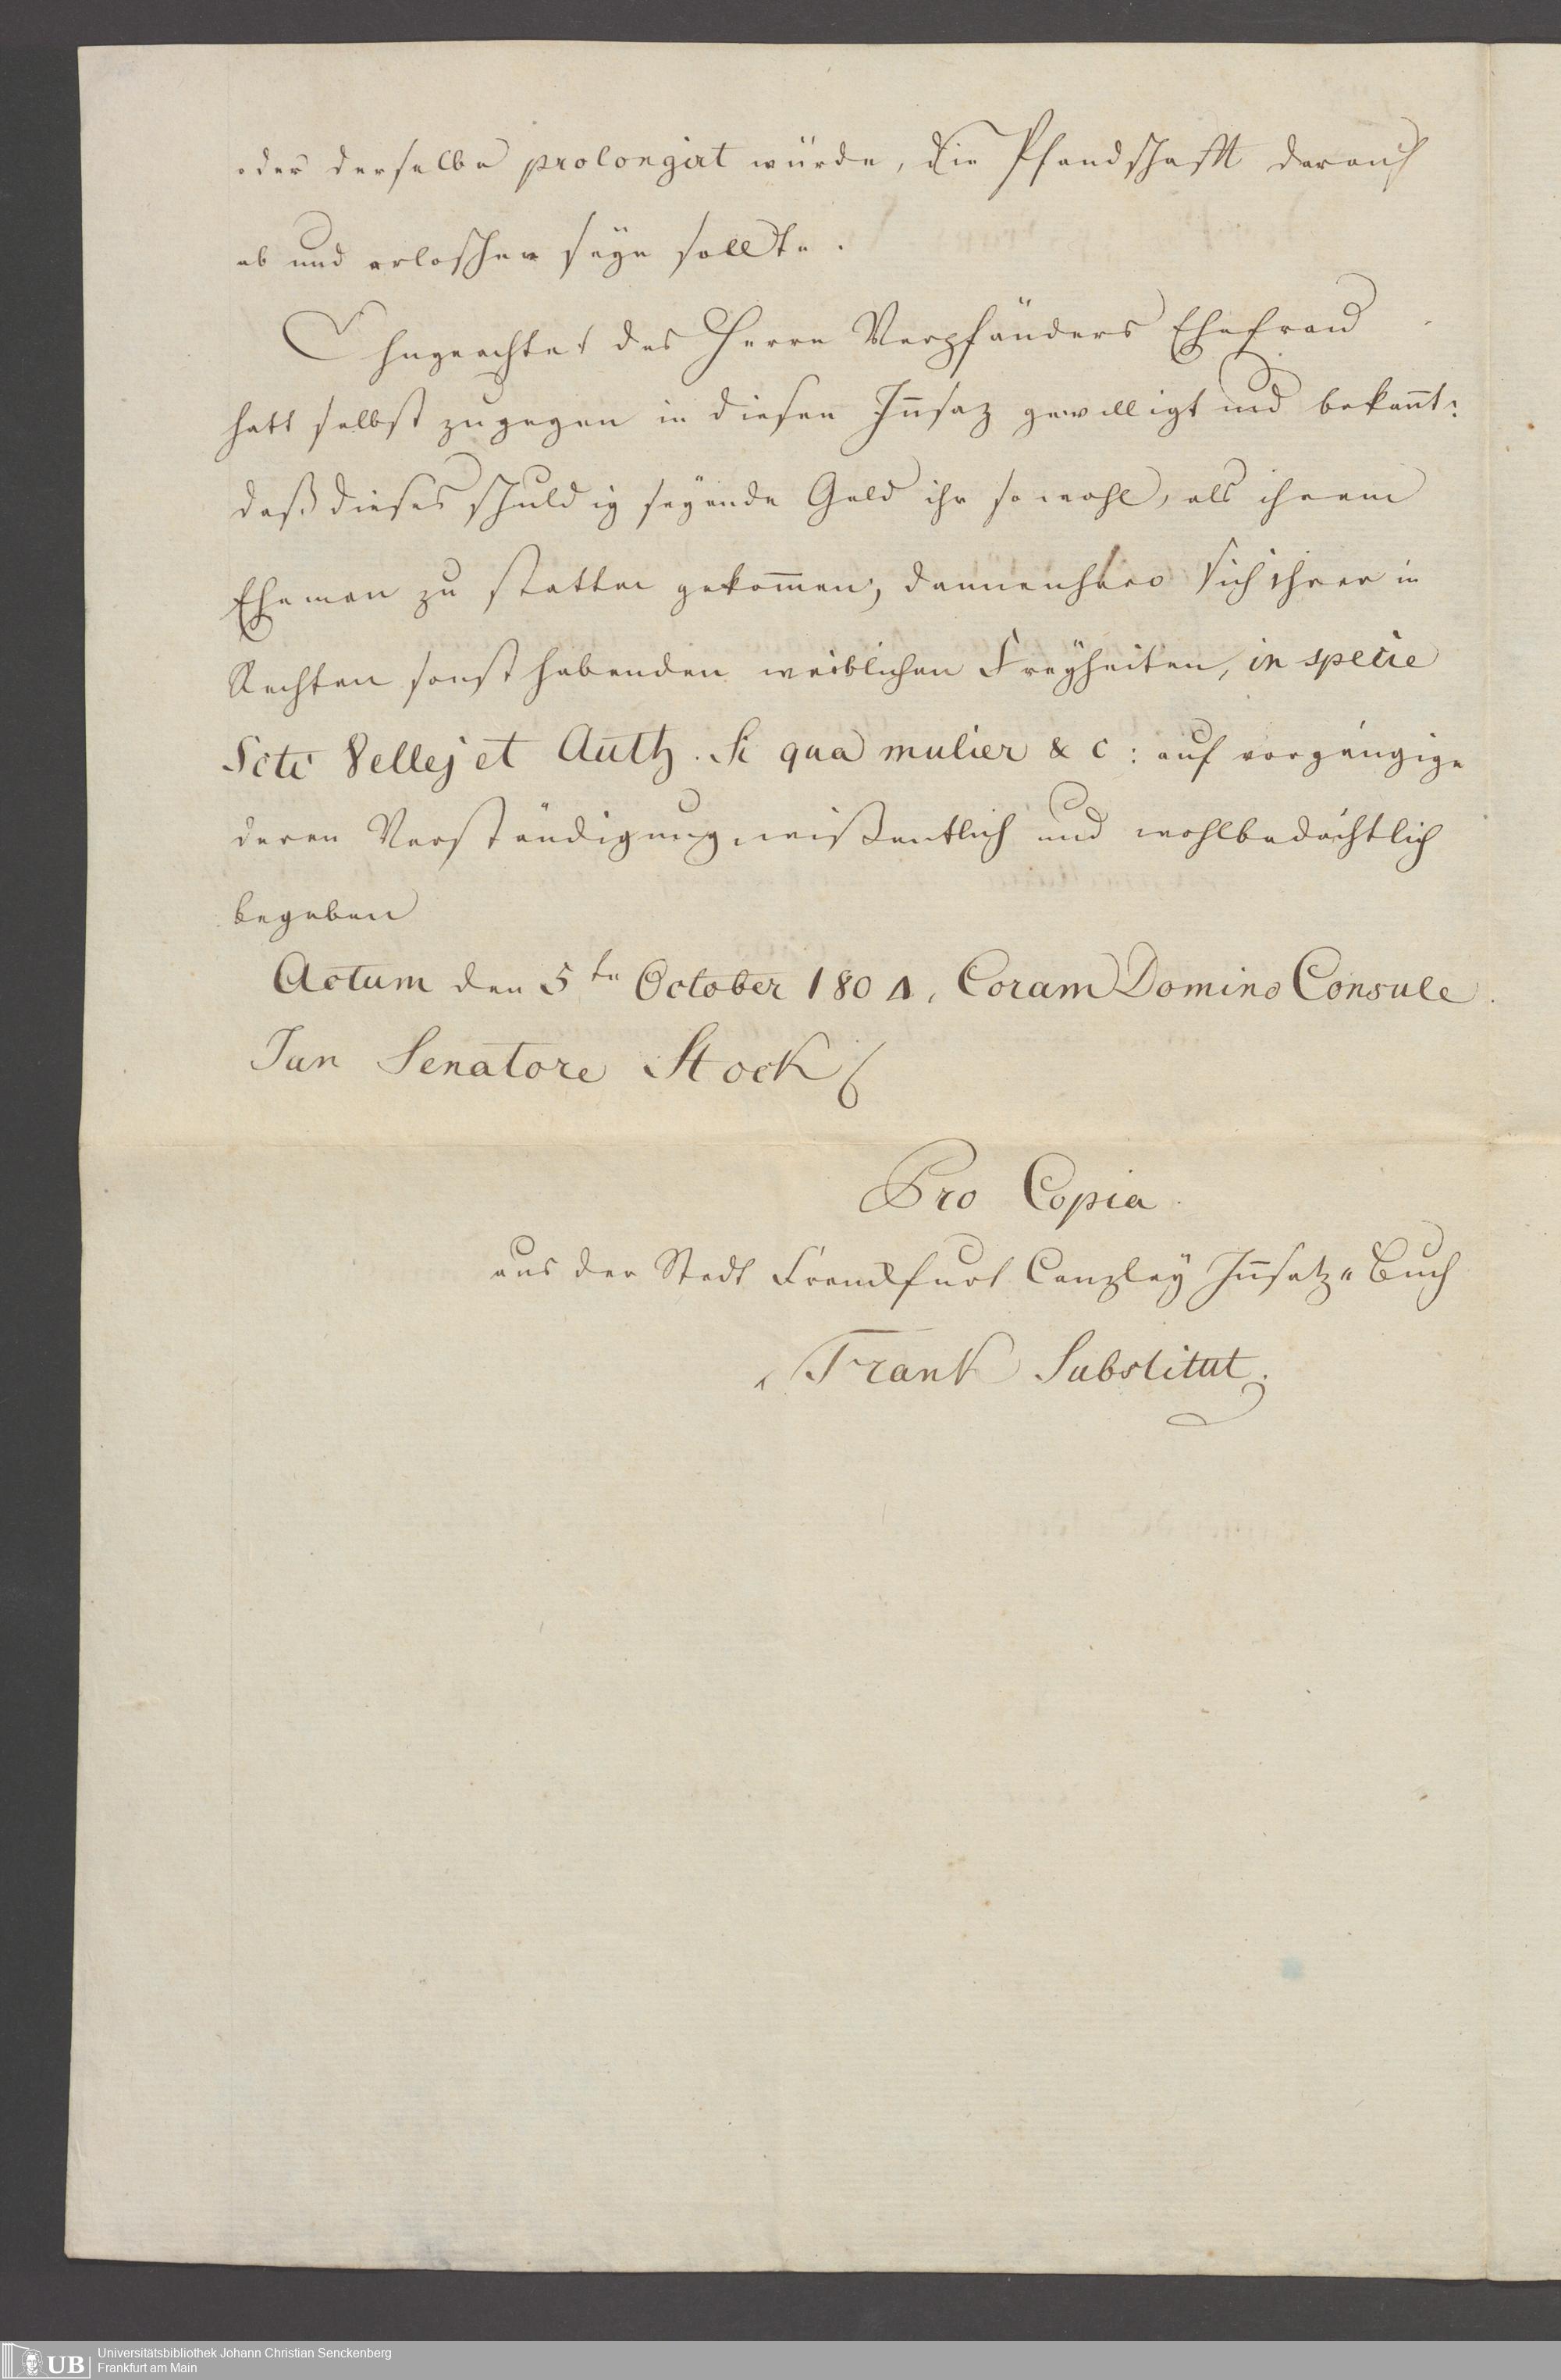 oder derselbe prolongirt würde, die Pfandschafft darauf
ab und erloschen seyn sollte.
Ohngeachtet des Herrn Verpfänders Ehefrau
hatt selbst zugegen in diesen Iñsaz gewilligt und bekañt:
daß dieses schuldig seyende Geld ihr sowohl, als ihrem
Eheman zu statten gekom̃en; dannenhero sich ihrer in
Rechten sonst habenden weiblichen Freyheiten, in specie
Scti Vellej et Auth. Si qua mulier & c: auf vorgängige
deren Verständigung wißentlich und wohlbedächtlich
begeben
Actum den 5ten October 1804, Coram Domino Consule
Jun Senatore Stock
Pro Copia.
aus der Stadt Franckfurt Canzley Iñsatz„Buch
Frank Substitut.
UB
Universitätsbibliothek Johann Christian Senckenberg
Frankfurt am Main